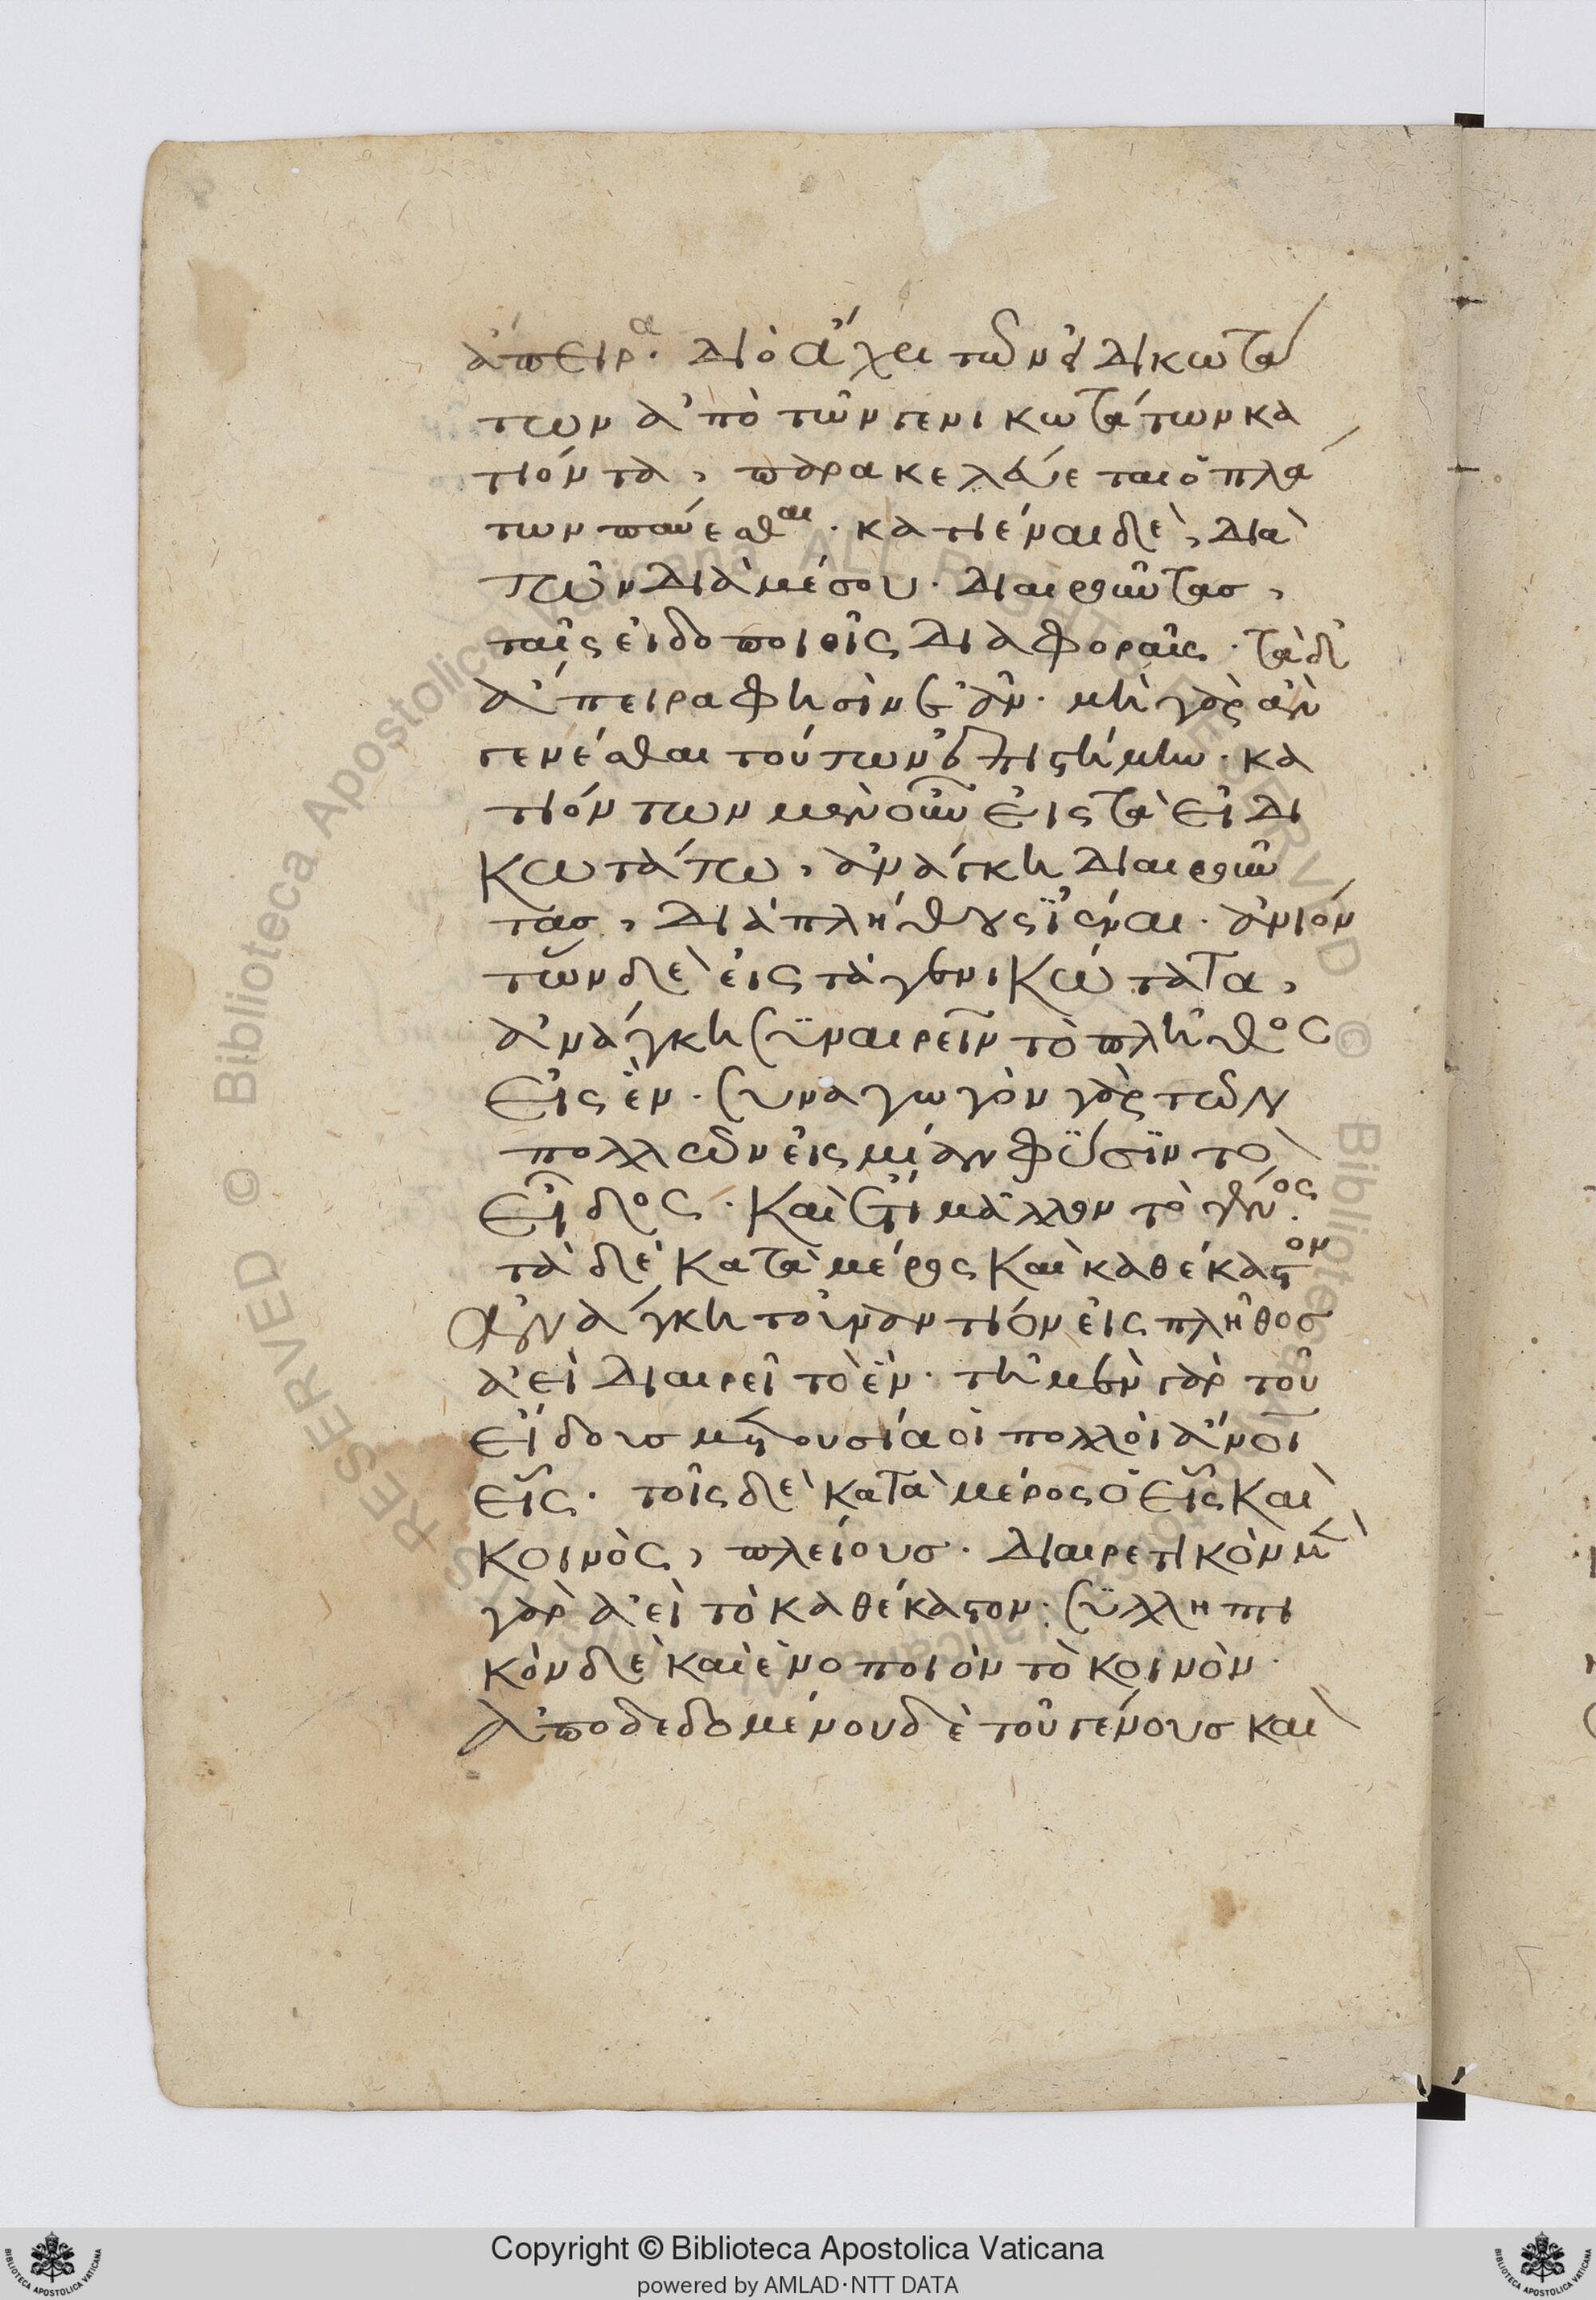 ἄπειρα· διὸ ἄχρι τῶν εἰδικωτά
των ἀπὸ τῶν γενικωτάτων κα
τιόντα, παρακελεύεται ὁ πλά
των παύεσθαι· κατιέναι δὲ, διὰ
τῶν διὰ μέσου· διαιροῦντας,
ταῖς εἰδοποιοῖς διαφοραῖς· τὰ δ'
ἄπειρα φησὶν ἐᾶν· μὴ γὰρ ἂν
γενέσθαι τούτων ἐπιστήμην· κα
τιόντων μὲν οὖν εἰς τὰ εἰδι
κωτάτω, ἀνάγκη διαιροῦν
τας, διὰ πλήθους ϊέναι· ἀνιόν
των δὲ εἰς τὰ γενικώτατα,
ἀνάγκη συναιρεῖν τὸ πλῆθος
εἰς ἓν· συναγωγὸν γὰρ τῶν
πολλῶν εἰς μίαν φύσϊν τὸ
εἶδος· καὶ ἔτι μᾶλλον τὸ γένος·
τὰ δὲ κατὰ μέρος καὶ καθέκαστον
ἀνάγκη τοὐναντίον εἰς πλῆθος
ἀεὶ διαιρεῖ τὸ ἕν· τῇ μὲν γὰρ τοῦ
εἴδους μετουσία οἱ πολλοὶ ἄνοι
εἷς· τοῖς δὲ κατὰ μέρος ὁ εἷς καὶ
κοινὸς, πλείους· διαιρετικὸν μὲν
γὰρ ἀεὶ τὸ καθέκαστον· συλληπτι
κὸν δὲ καὶ ἑνοποιὸν τὸ κοινὸν·
ἀποδεδομένου δὲ τοῦ γένους καὶ
Copyright © Biblioteca Apostolica Vaticana
powered by AMLAD·NTT DATA